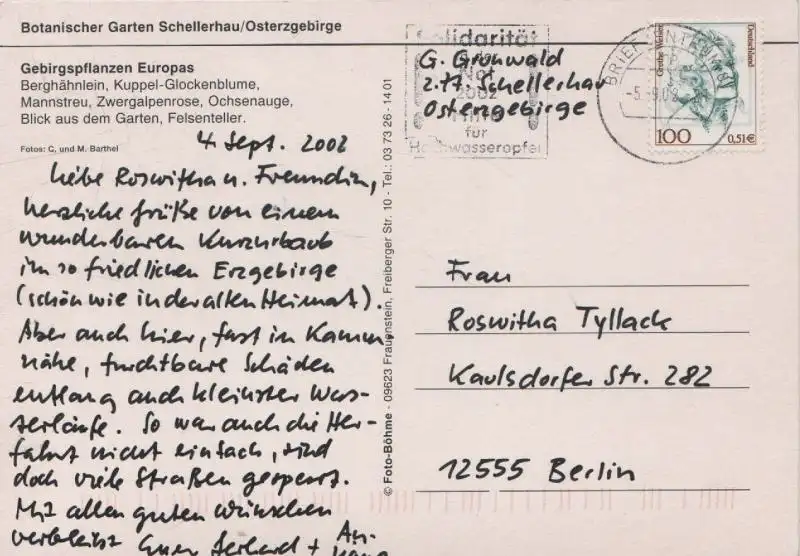 Botanischer Garten Schellerhau/Osterzgebirge
Gebirgspflanzen Europas
Berghähnlein, Kuppel-Glockenblume,
Mannstreu, Zwergalpenrose, Ochsenauge,
Blick aus dem Garten, Felsenteller.
Fotos: C. und M. Barthel
4. Sept. 2002
Liebe Roswitha u. Freundin,
herzliche Grüße von einem
wunderbaren Kurzurlaub
im so friedlichen Erzgebirge
(schön wie in der alten Heimat).
Aber auch hier, fast in Kamm-
nähe, furchtbare Schäden
entlang auch kleinster Was-
serläufe. So war auch die Her-
fahrt nicht einfach, sind
doch viele Straßen gesperrt.
Mit allen guten Wünschen
verbleibt Euer Gerhard +
© Foto-Böhme - 09623 Frauenstein, Freiberger Str. 10 - Tel.: 03 73 26 - 14 01
Solidarität
in
der
Not
2002
Hilfe
für
Hochwasseropfer
G. Grunwald
z. Zt. Schellerhau
Osterzgebirge
BRIEFZENTRUM
-5.-9.02
Grethe Weiser
Deutschland
100
0,51€
Frau
Roswitha Tyllack
Kaulsdorfer Str. 282
12555 Berlin